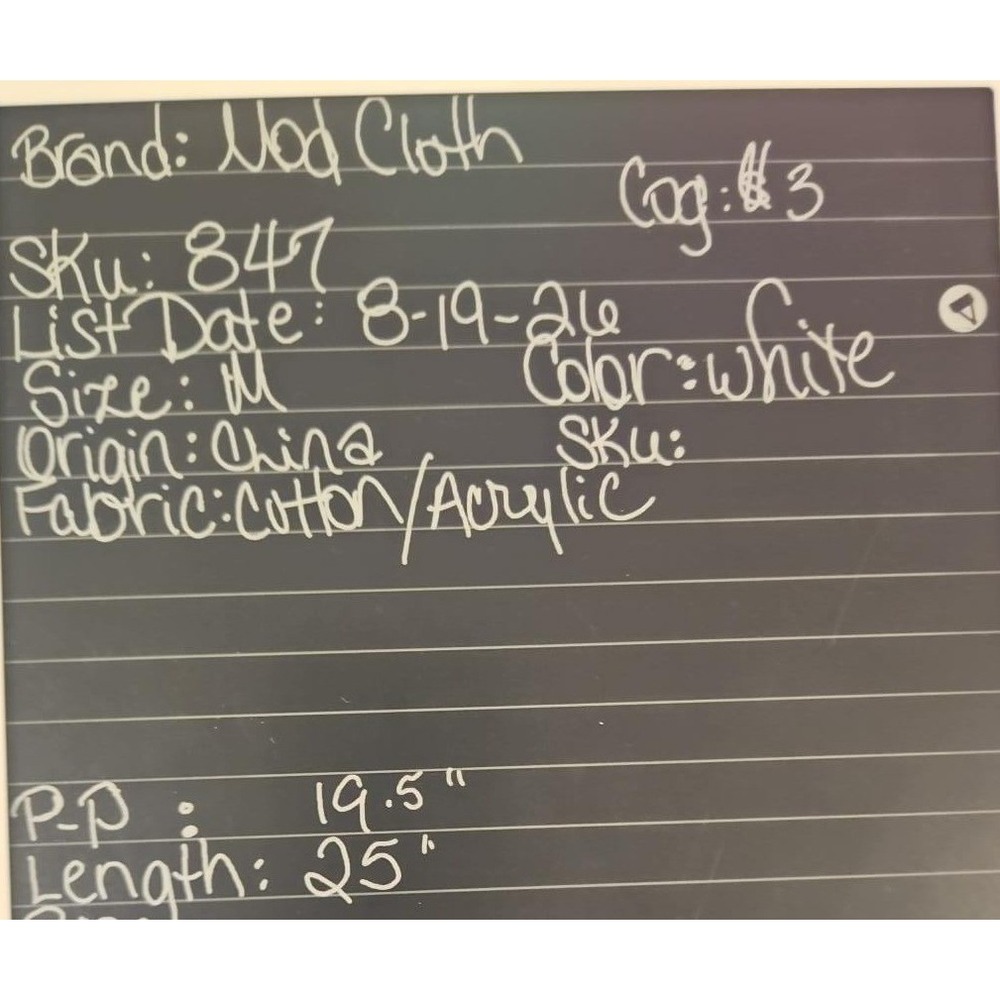 Brand: Mod Cloth
Cog: $ 3
SKu: 847
List Date: 8-19-26
Size: M Color: white
Origin: China SKu:
Fabric: Cotton/Acrylic
P-P : 19.5"
Length: 25"